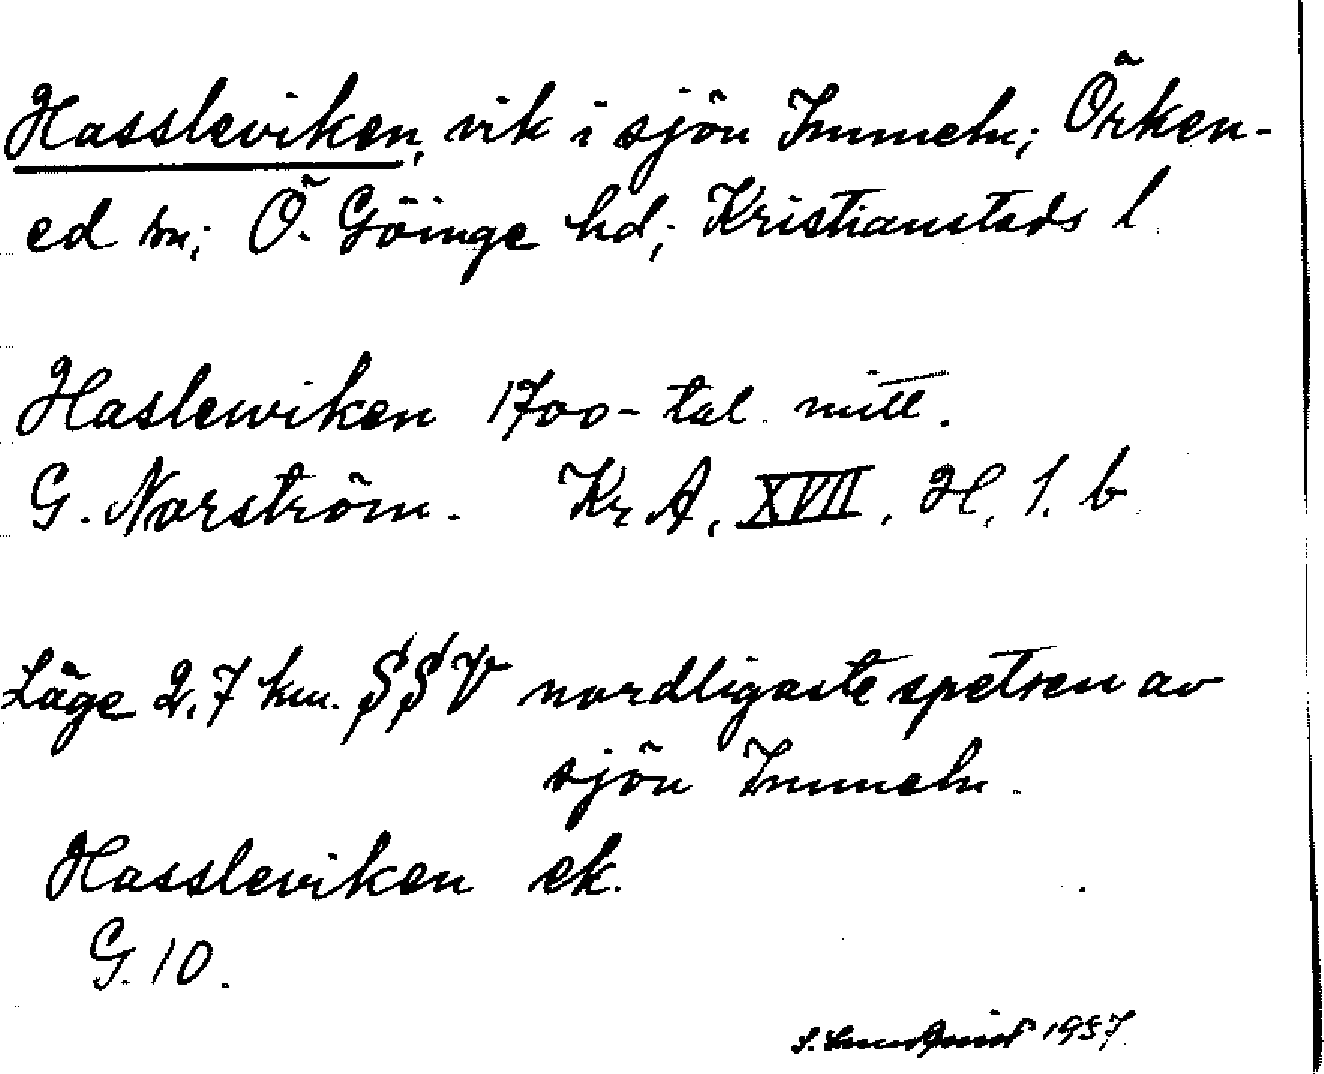 Hassleviken, vik i sjön Immeln; Örken-
ed sn; Ö. Göinge hd; Kristianstads l.
Haslewiken 1700-tal mitt.
G. Norström. Kr A, XVII, H, 1. b
Läge 2,7 km. SSV nordligaste spetsen av
sjön Immeln.
Hassleviken ek.
G. 10.
S. Lundquist 1937